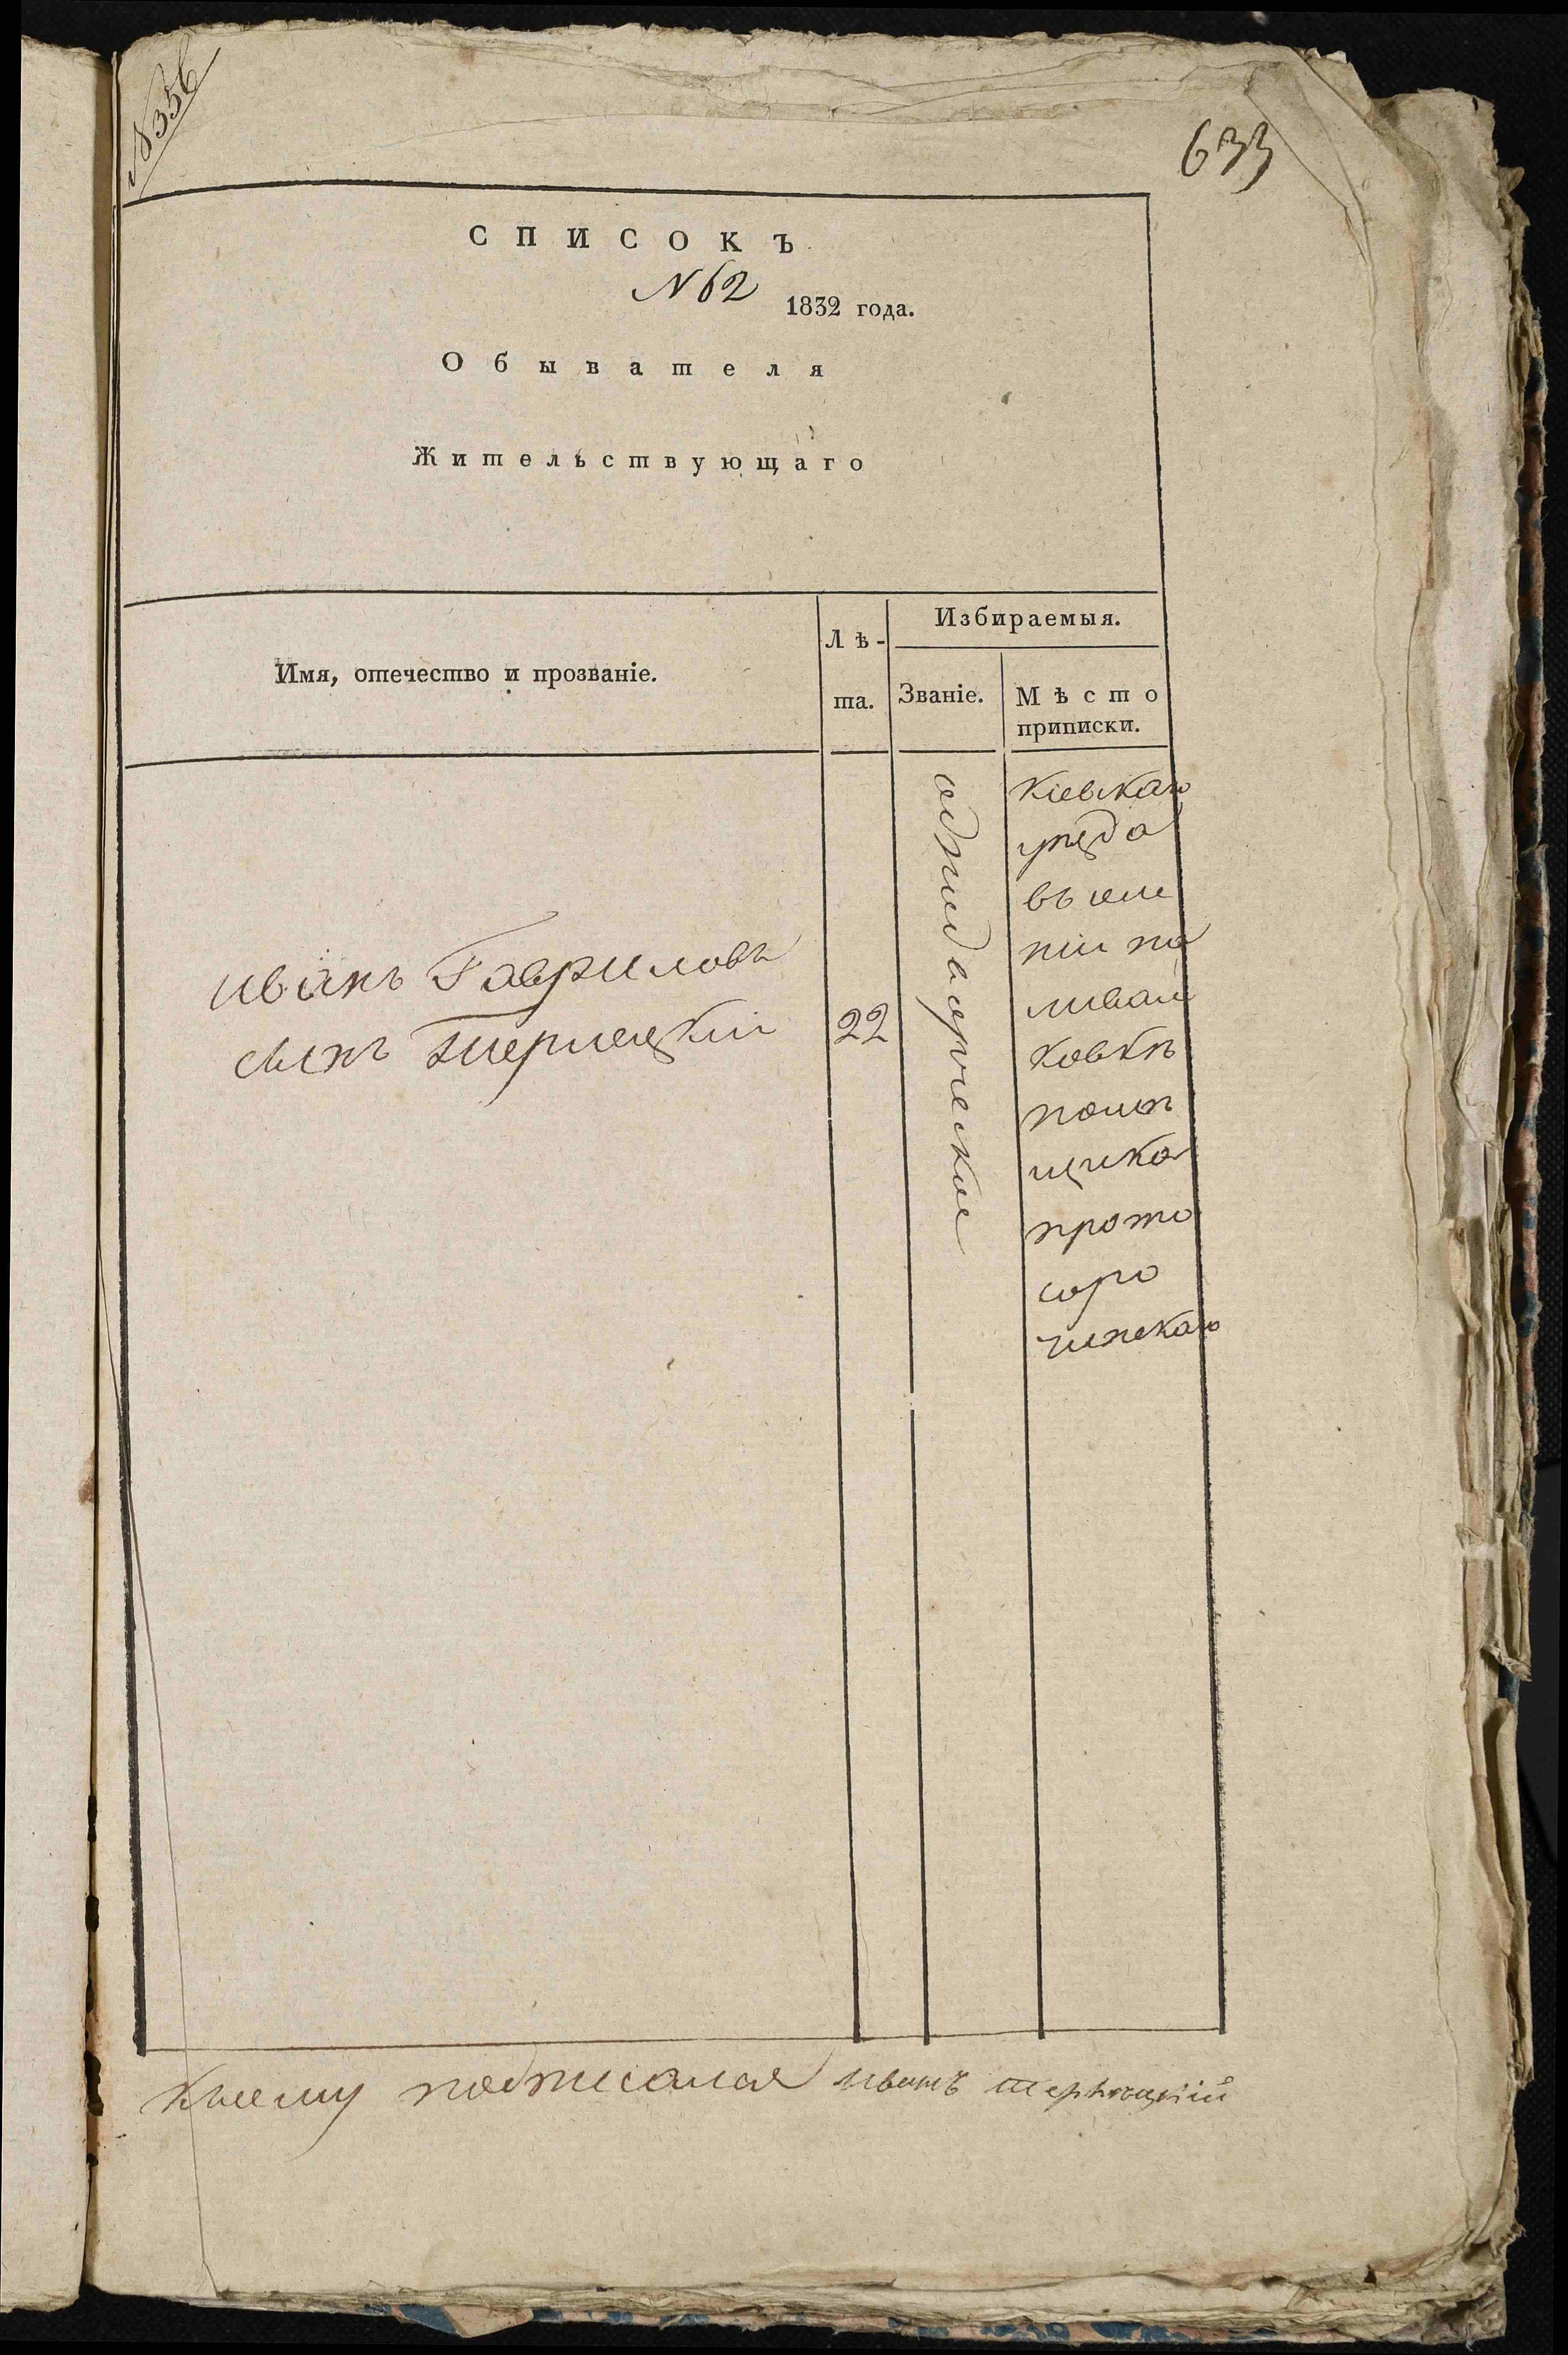 N 356
633
СПИСОКЪ
N 62
1832 года.
Обывателя
Жительствующаго
Имя, отечество и прозваніе.
Лѣ-
та.
Избираемыя.
Званіе.
Мѣсто
приписки.
иванъ Гавриловъ
сынъ терлецкій
22
однодворческое
Кіевскаго
уезда
въ име
ніи по
ливан
ковкѣ
помѣ
щика
прото
соро
чинскаго
Ксему подписался иванъ терлецкій